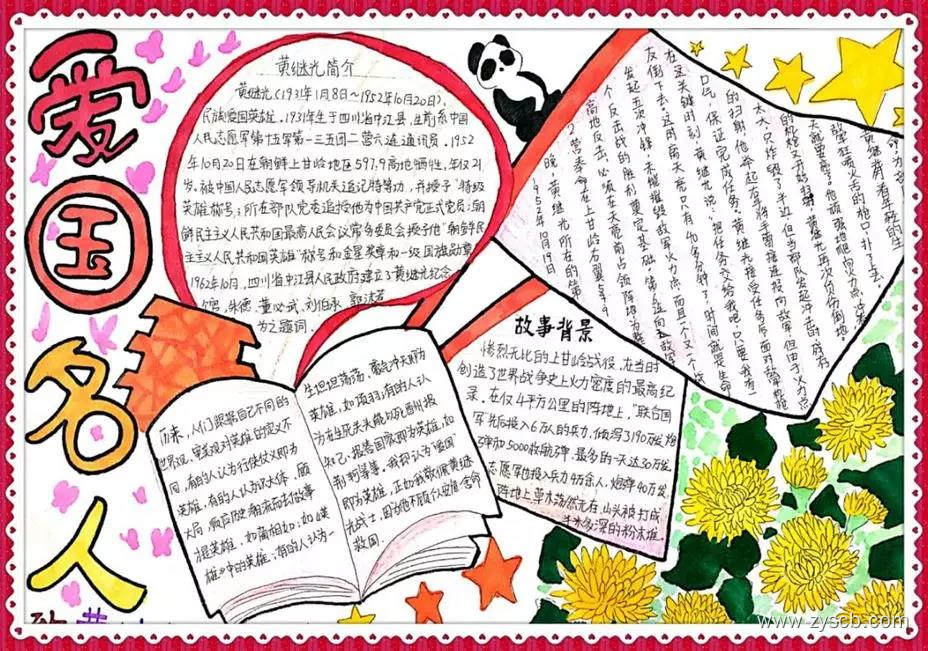 爱
国
名
人
黄继光简介
黄继光(1931年1月8日~1952年10月20日),
民族爱国英雄,1931年生于四川省中江县,生前系中国
人民志愿军第十五军第一三五团二营六连通讯员。1952
年10月20日在朝鲜上甘岭地区597.9高地牺牲,年仅21
岁。被中国人民志愿军领导机关追记特等功,并授予“特级
英雄称号;所在部队党委追授他为中国共产党正式党员;朝
鲜民主主义人民共和国最高人民会议常务委员会授予他“朝鲜民
主主义人民共和国英雄”称号和金星奖章和一级国旗勋章
1962年10月,四川省中江县人民政府建立了黄继光纪念
馆,朱德、董必武、刘伯承、郭沫若
为之题词.
故事背景
惨烈无比的上甘岭战役,在当时
创造了世界战争史上火力密度的最高纪
录。在仅4平方公里的阵地上,联合国
军先后投入6万人的兵力,倾泻了190万发炮
弹和5000枚航弹,最多的一天达30万发
志愿军也投入兵力4万余人,炮弹40万发
阵地上草木荡然无存,山头被打成
半米多深的粉末堆.
历来,人们跟据自己不同的
世界观,审美观对英雄的定义不
同,有的人认为行侠仗义即为
英雄,有的人认为识大体、顾
大局
橙英雄,如蔺相如;
雄》中的英雄;有的人认为一
生坦坦荡荡、豪气冲天即为
英雄,如项羽;有的人认
为
知己、报答国家即为英雄,如
荆轲等等。我却认为爱国
即为英雄,正如我敬佩黄继
光战士,因为他不顾个人安危舍命
救国.
1952年10月19日
晚,黄继光所在的第
2营奉命在上甘岭右翼
高地反击,必须在天亮前占领阵地
个反击战的胜利奠定基础。第6连向敌军
发起五次冲锋,未能摧毁敌军火力点
友倒下去。这时离天亮只有40多分钟了,时间就是生命
在这关键时刻,黄继光说:“把任务交给我吧,只要我有
一口气,保证完成任务。”黄继光接受任务后面对敌军
的扫射,他举起右臂将手雷接连投向敌军,但由于火力点
太大,只炸毁了半边,但当部队发起冲击的时候
的机枪又开始扫射
他顽强地爬向火力点
狂喷火舌的枪口扑了上去
黄继光用着年轻的生
www.zyscb.com